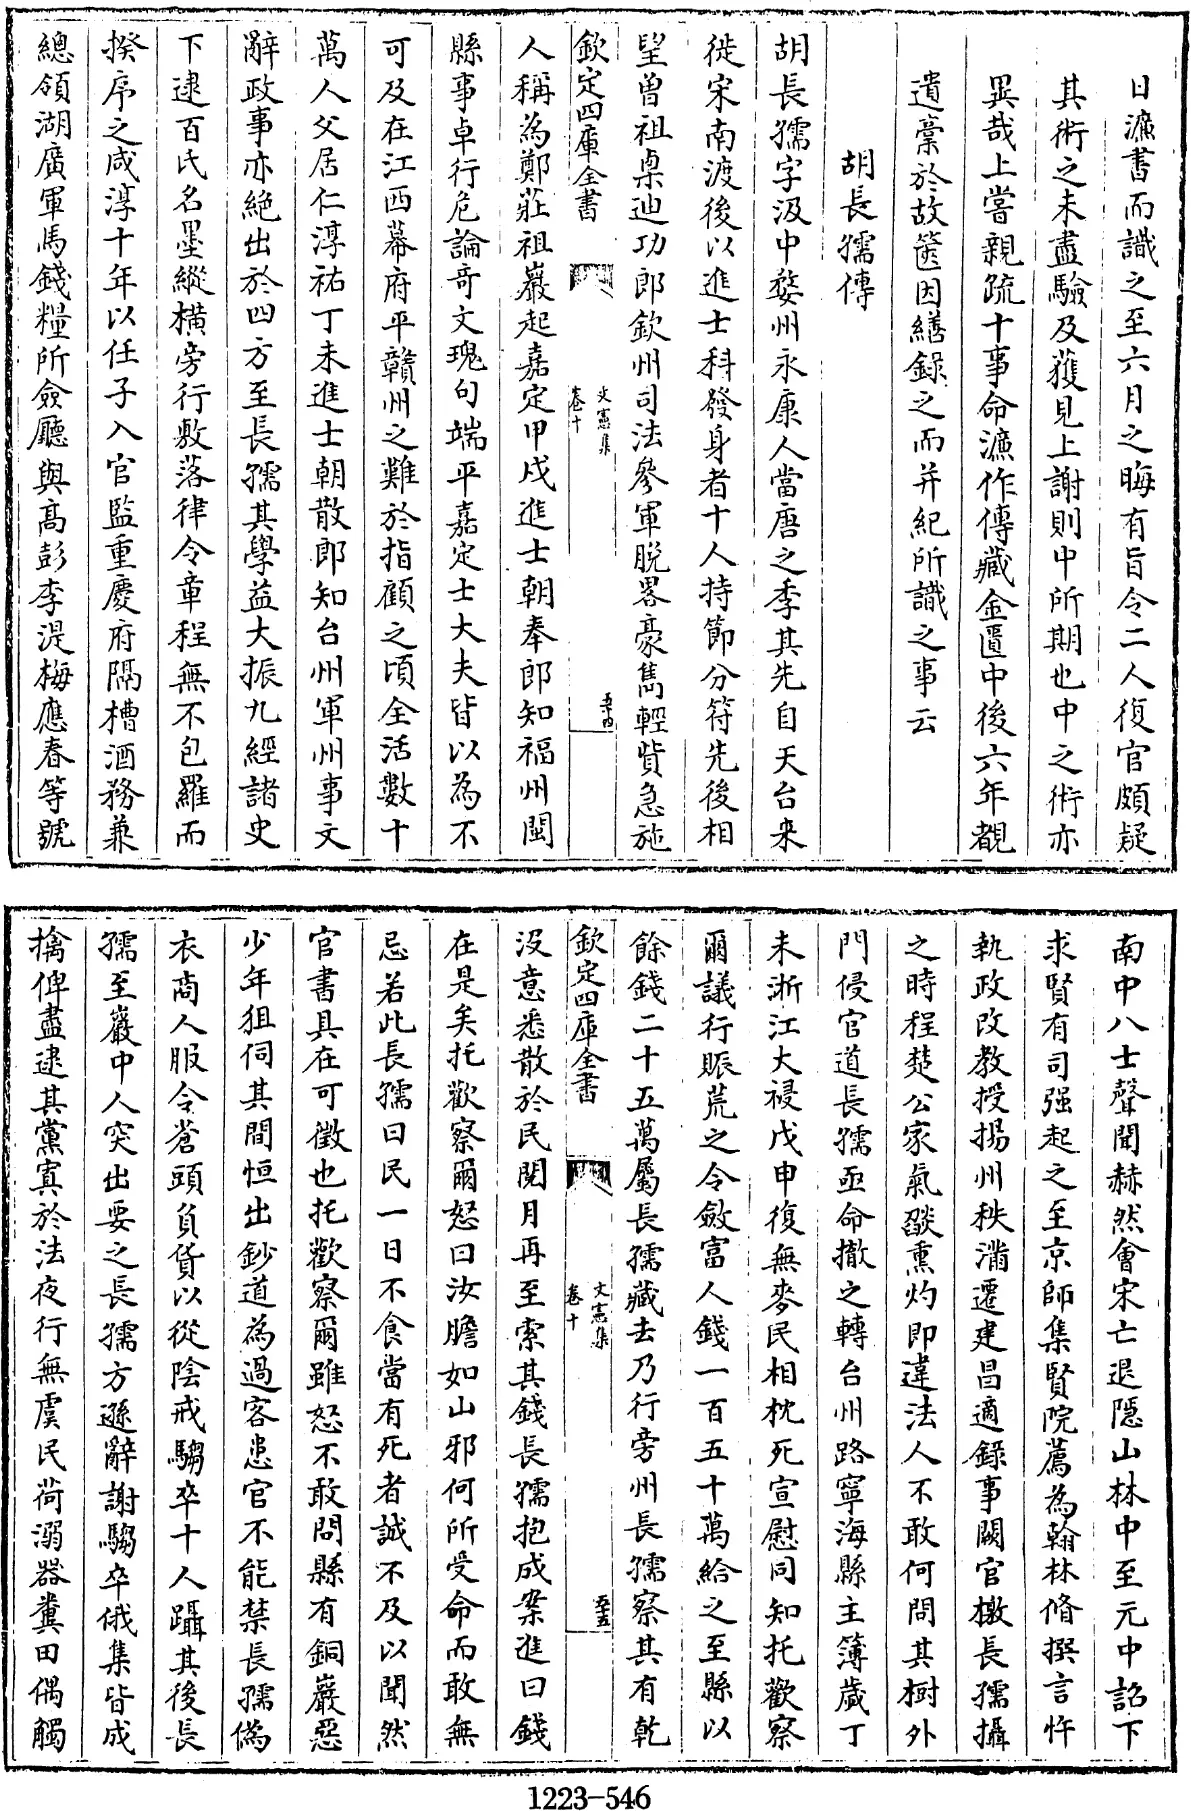 日濂書而識之至六月之晦有旨令二人復官頗疑
其術之未盡驗及獲見上謝則中所期也中之術亦
異哉上嘗親疏十事命濂作傳藏金匱中後六年覩
遺稾於故篋因繕錄之而并紀所識之事云
胡長孺傳
胡長孺字汲中婺州永康人當唐之季其先自天台來
徙宋南渡後以進士科發身者十人持節分符先後相
望曾祖㮚迪功郎欽州司法參軍脱畧豪雋輕貲急施
欽定四庫全書
文憲集
卷十
五十四
人稱為鄭莊祖巖起嘉定甲戌進士朝奉郎知福州閩
縣事卓行危論奇文瑰句端平嘉定士大夫皆以為不
可及在江西幕府平贛州之難於指顧之頃全活數十
萬人父居仁淳祐丁未進士朝散郎知台州軍州事文
辭政事亦絶出於四方至長孺其學益大振九經諸史
下逮百氏名墨縱橫旁行敷落律令章程無不包羅而
揆序之咸淳十年以任子入官監重慶府隔槽酒務兼
總領湖廣軍馬錢糧所僉廳與高彭李湜梅應春等號
南中八士聲聞赫然會宋亡退隱山林中至元中詔下
求賢有司强起之至京師集賢院薦為翰林脩撰言忤
執政改教授揚州秩滿遷建昌適錄事闕官檄長孺攝
之時程楚公家氣燄熏灼即違法人不敢何問其樹外
門侵官道長孺亟命撤之轉台州路寧海縣主簿歲丁
未浙江大祲戊申復無麥民相枕死宣慰同知托歡察
爾議行賑荒之令斂富人錢一百五十萬給之至縣以
餘錢二十五萬屬長孺藏去乃行旁州長孺察其有乾
欽定四庫全書
文憲集
卷十
五十五
沒意悉散於民閱月再至索其錢長孺抱成案進曰錢
在是矣托歡察爾怒曰汝膽如山邪何所受命而敢無
忌若此長孺曰民一日不食當有死者誠不及以聞然
官書具在可徵也托歡察爾雖怒不敢問縣有銅巖惡
少年狙伺其間恒出鈔道為過客患官不能禁長孺偽
衣商人服令蒼頭負貨以從陰戒騶卒十人躡其後長
孺至巖中人突出要之長孺方遜辭謝騶卒俄集皆成
擒俾盡逮其黨寘於法夜行無虞民荷溺器糞田偶觸
1223-546